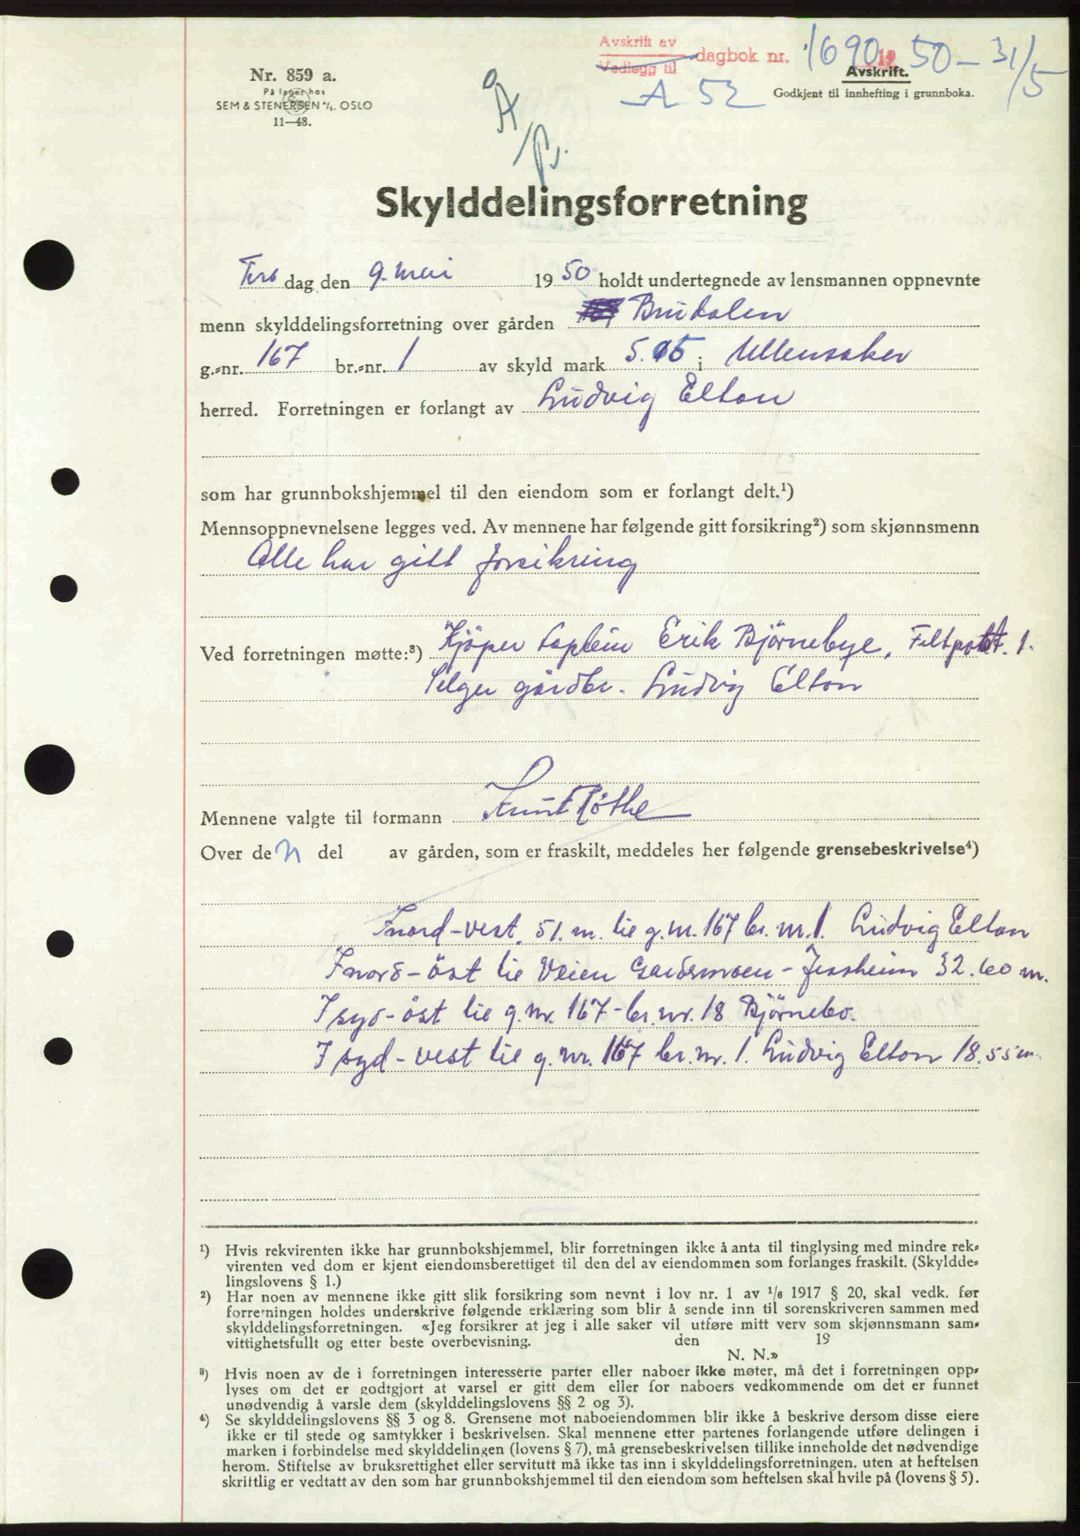 Avskrift av
Vedlegg til dagbok nr. 1690 1950 – 31/5
A 52
Avskrift.
Godkjent til innhefting i grunnboka.
Nr. 859 a.
På lager hos
SEM & STENERSEN A/S. OSLO
11—48.
Skylddelingsforretning
Tirsdag den 9. mai 1950 holdt undertegnede av lensmannen oppnevnte
menn skylddelingsforretning over gården Brudalen
g.-nr. 167 br.-nr. 1 av skyld mark 5.05 i Ullensaker
herred. Forretningen er forlangt av Ludvig Elton
som har grunnbokshjemmel til den eiendom som er forlangt delt.¹)
Mennsoppnevnelsene legges ved. Av mennene har følgende gitt forsikring²) som skjønnsmenn
Alle har gitt forsikring
Ved forretningen møtte:³) Kjöper kaptein Erik Bjørnebye, Feltpostk. 1.
Selger gårdbr. Ludvig Elton
Mennene valgte til formann Knut Røthe
Over den del av gården, som er fraskilt, meddeles her følgende grensebeskrivelse⁴)
I nord-vest. 51. m. til g.nr. 167 br. nr. 1. Ludvig Elton
I nord-öst til Veien Gardermoen – Jessheim 32.60 m.
I syd-öst til g.nr. 167 - br. nr. 18 Björnebo.
I syd-vest til g.nr. 167 br. nr. 1. Ludvig Elton 18.55 m.
¹) Hvis rekvirenten ikke har grunnbokshjemmel, blir forretningen ikke å anta til tinglysing med mindre rek-
virenten ved dom er kjent eiendomsberettiget til den del av eiendommen som forlanges fraskilt. (Skyldde-
lingslovens § 1.)
²) Har noen av mennene ikke gitt slik forsikring som nevnt i lov nr. 1 av 1/6 1917 § 20, skal vedk. før
forretningen holdes underskrive følgende erklæring som blir å sende inn til sorenskriveren sammen med
skylddelingsforretningen. «Jeg forsikrer at jeg i alle saker vil utføre mitt verv som skjønnsmann sam-
vittighetsfullt og etter beste overbevisning. den 19
N. N.»
³) Hvis noen av de i forretningen interesserte parter eller naboer ikke møter, må det i forretningen opp-
lyses om det er godtgjort at varsel er gitt dem eller for naboers vedkommende om det er funnet
unødvendig å varsle dem (skylddelingslovens §§ 2 og 3).
⁴) Se skylddelingslovens §§ 3 og 8. Grensene mot naboeiendommen blir ikke å beskrive dersom disse eiere
ikke er til stede og samtykker i beskrivelsen. Skal mennene etter partenes forlangende utføre delingen i
marken i forbindelse med skylddelingen (lovens § 7), må grensebeskrivelsen tillike inneholde det nødvendige
herom. Stiftelse av bruksrettighet eller servitutt må ikke tas inn i skylddelingsforretningen. uten at heftelsen
skriftlig er vedtatt av den som har grunnbokshjemmel til den eiendom som heftelsen skal hvile på (lovens § 5).